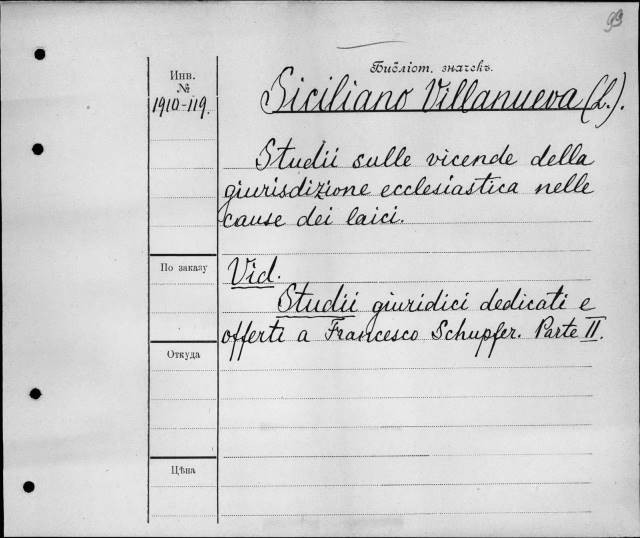 99
Библіот. значекъ.
Инв.
№
1910-119.
Siciliano Villanueva (L.).
Studii sulle vicende della
giurisdizione ecclesiastica nelle
cause dei laici.
По заказу
Vid.
Studii giuridici dedicati e
offerti a Francesco Schupfer. Parte II.
Откуда
Цѣна